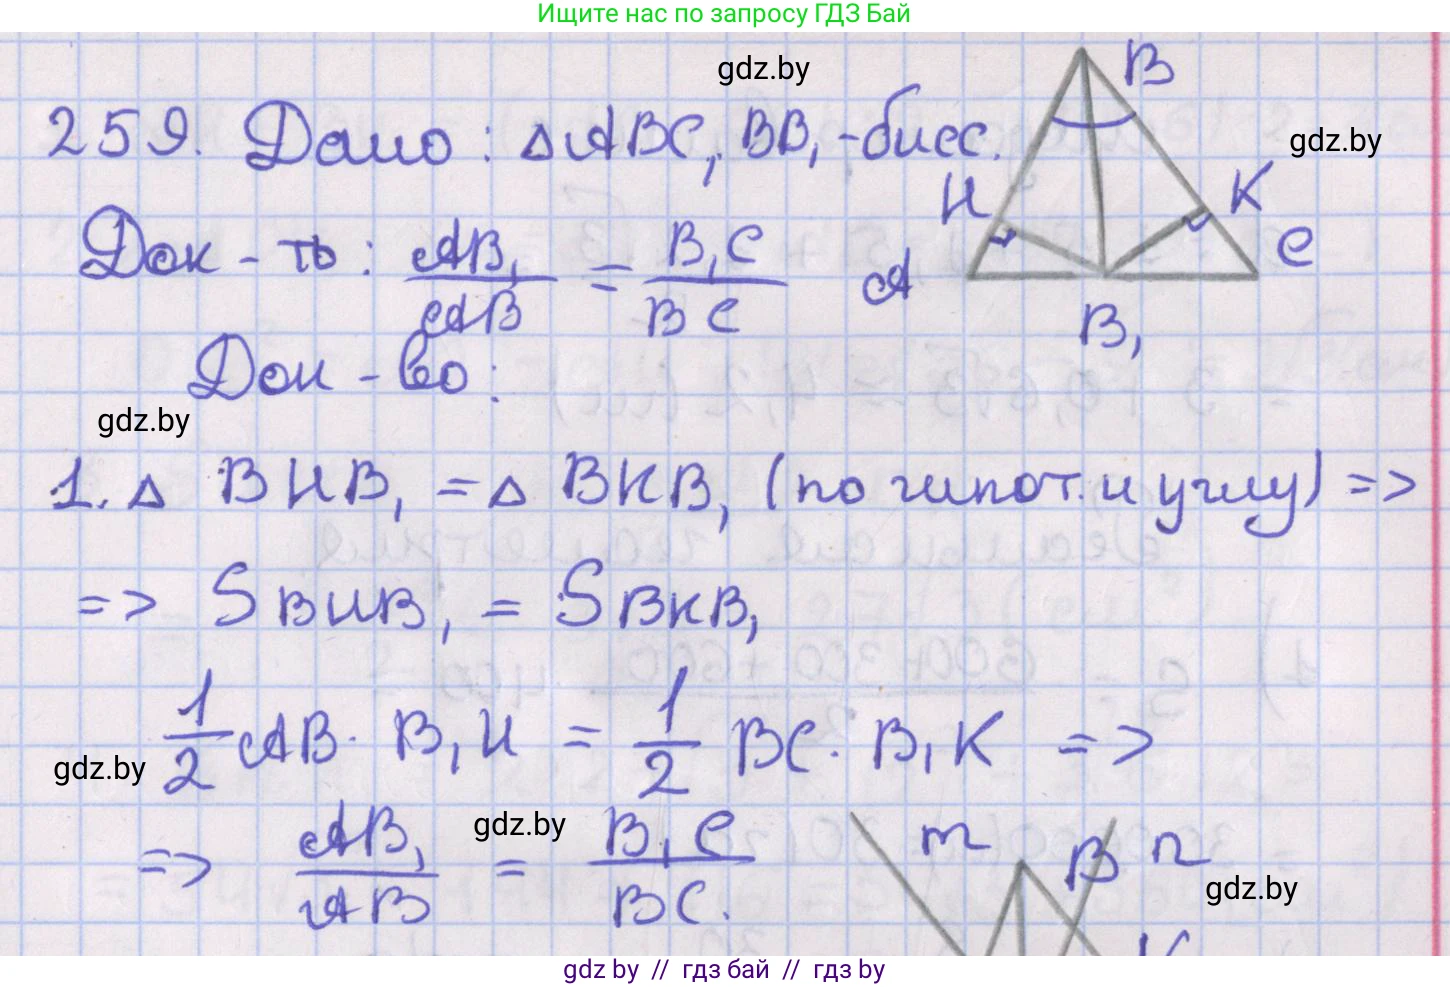 Ищите нас по запросу ГДЗ Бай
gdz.by
B
259. Дано: △ABC, BB₁ - бисс.
gdz.by
H
K
Док-ть: AB₁/AB = B₁C/BC
A
C
B₁
Док-во:
gdz.by
1. △ BHB₁ = △ BKB₁ (по гипот. и углу) =>
=> S BHB₁ = S BKB₁
1/2 AB · B₁H = 1/2 BC · B₁K =>
gdz.by
=> AB₁/AB = B₁C/BC.
gdz.by
m
B
n
gdz.by
K
gdz by // гдз бай // гдз by